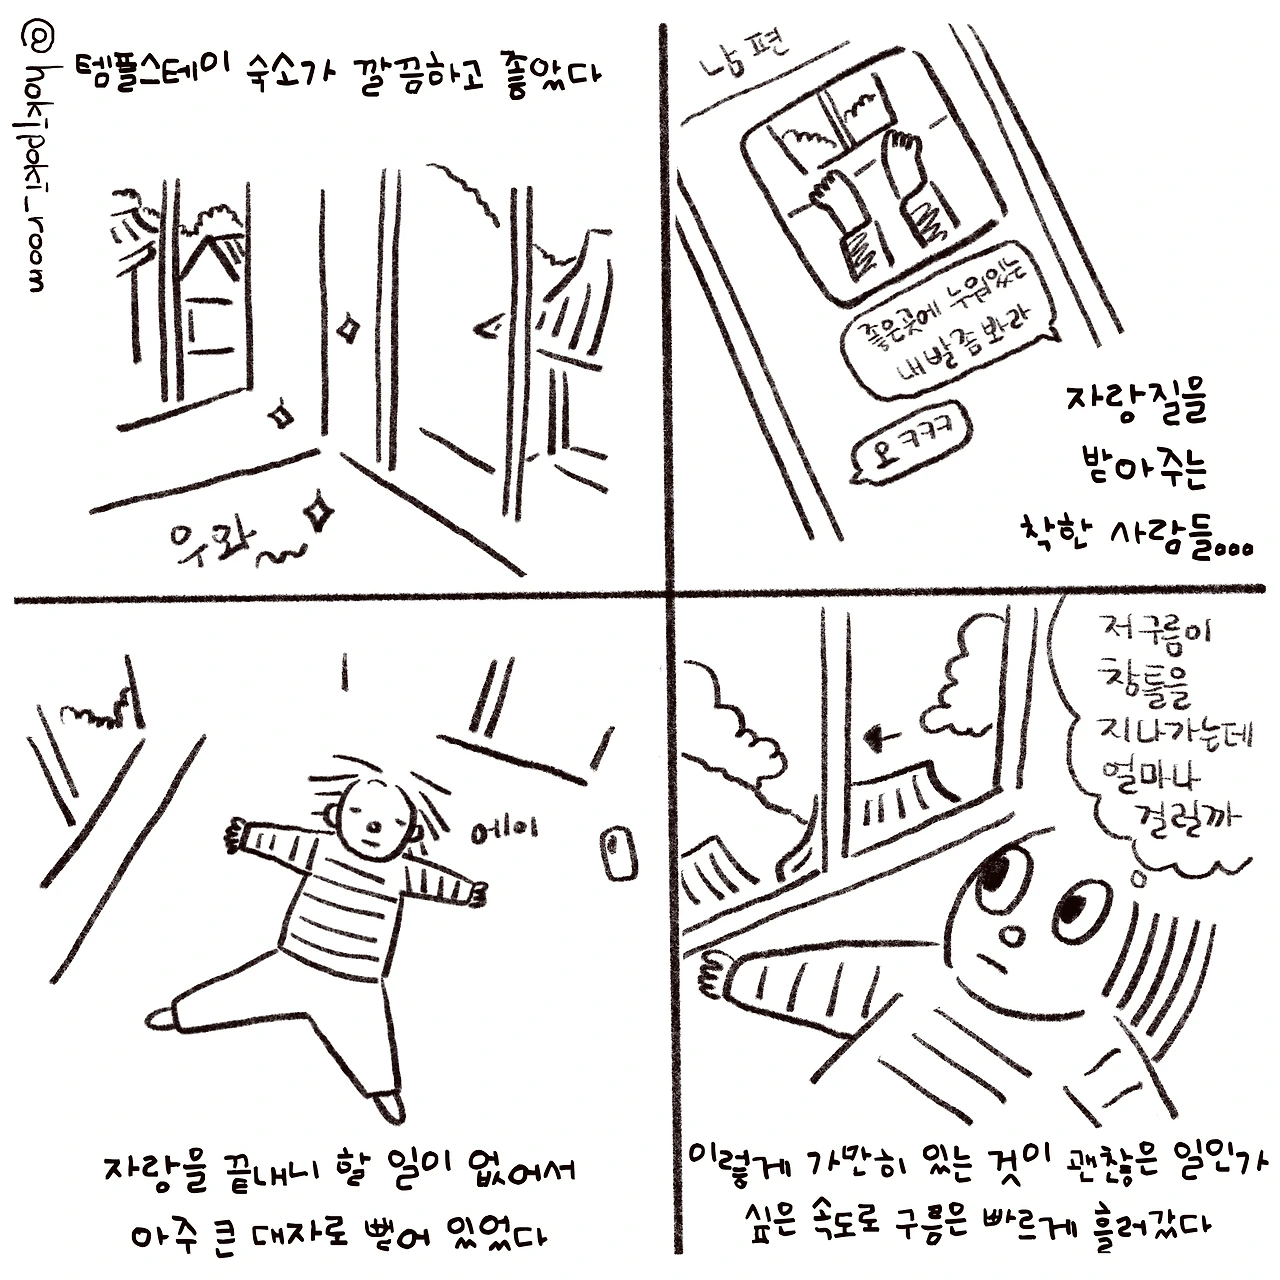 @hokipoki_room
템플스테이 숙소가 깔끔하고 좋았다
우와~
남편
좋은곳에 누워있는
내 발 좀 봐라
오 ㅋㅋㅋ
자랑질을
받아주는
착한 사람들...
에이
자랑을 끝내니 할 일이 없어서
아주 큰 대자로 뻗어 있었다
저 구름이
창틀을
지나가는데
얼마나
걸릴까
이렇게 가만히 있는 것이 괜찮은 일인가
싶은 속도로 구름은 빠르게 흘러갔다